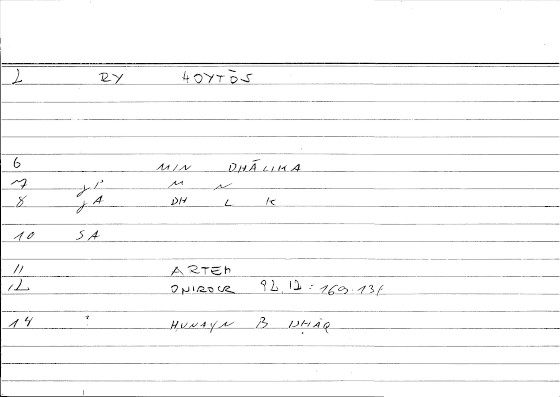 2 RY 4OYTŌS
6 MIN DHĀLIKA
7 jP M N
8 jA DH L K
10 SA
11 ARTEM
12 ONIROCR 92,12:169.13
14 ? HUNAYN B